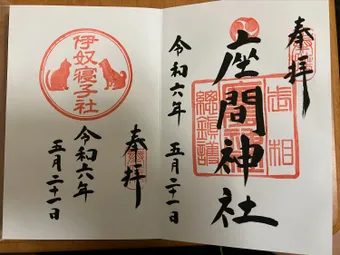 奉拝
座間神社
令和六年 五月二十一日
伊奴寝子社
奉拝
令和六年
五月二十一日